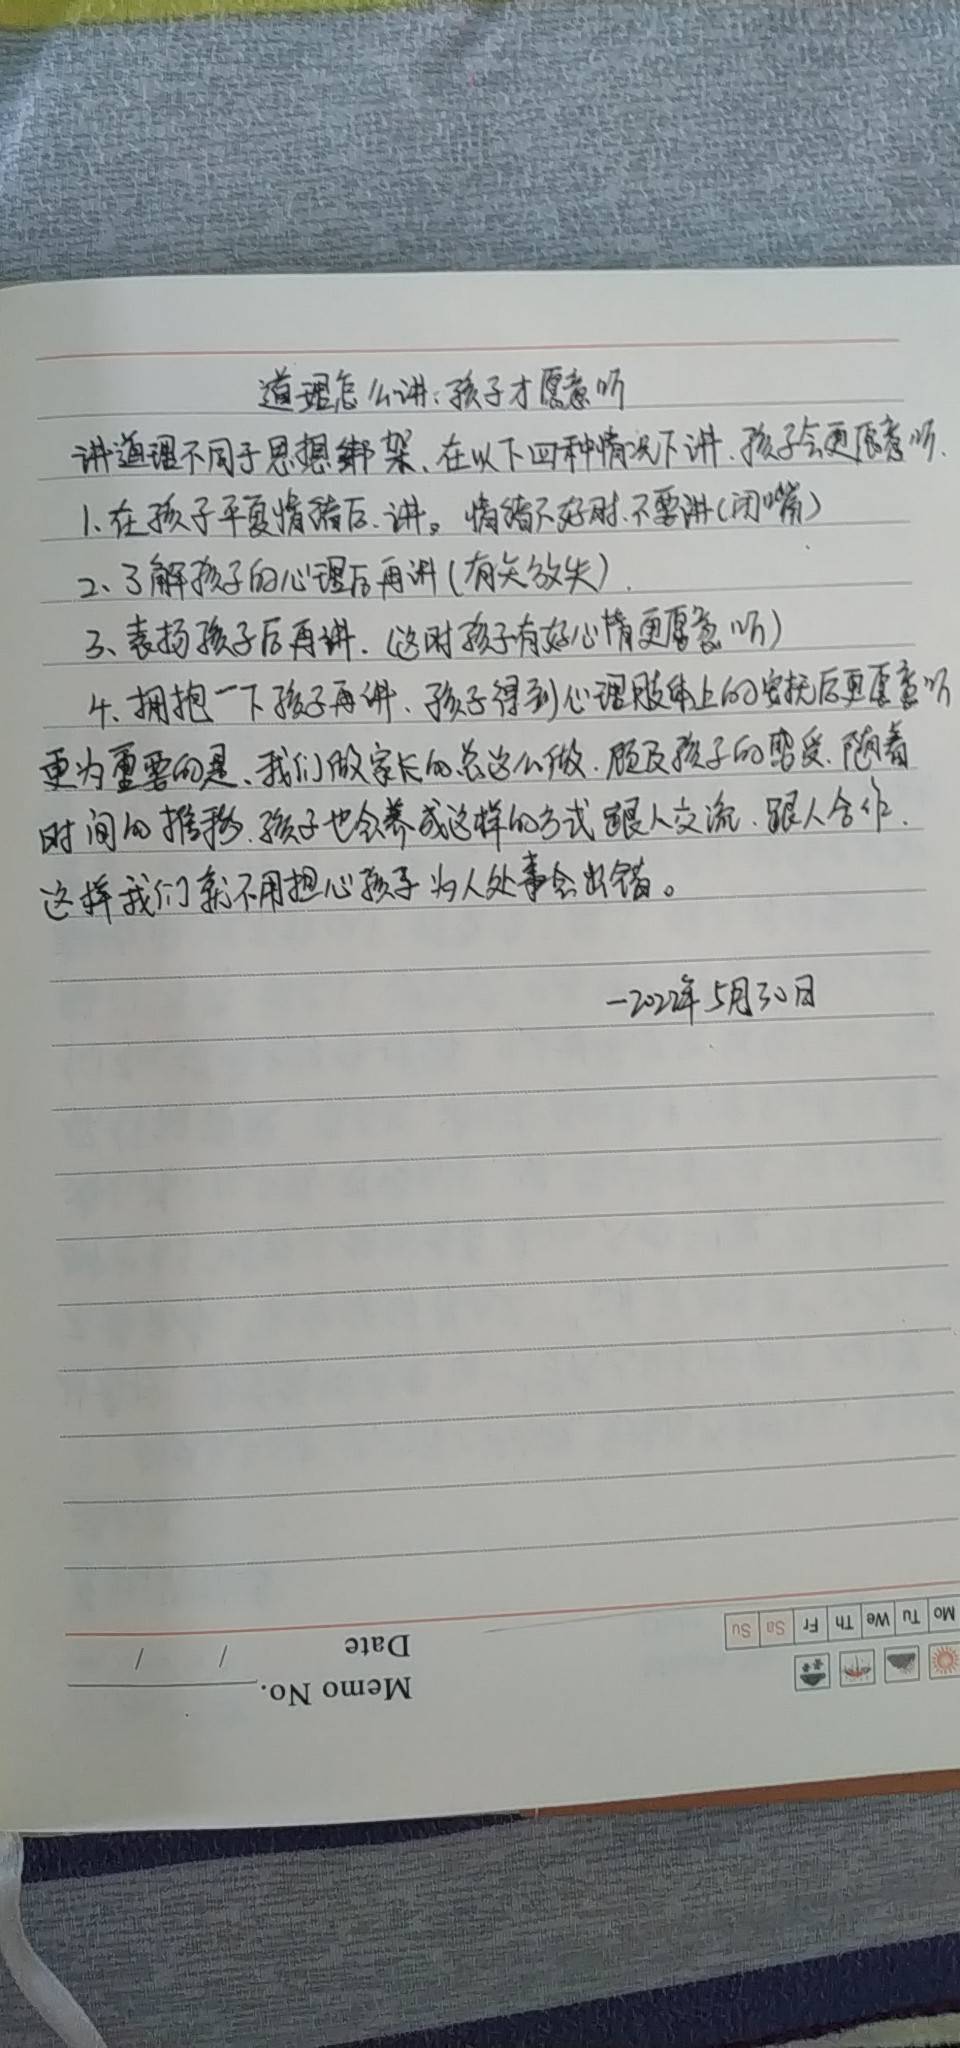 道理怎么讲,孩子才愿意听
讲道理不同于思想绑架、在以下四种情况下讲、孩子会更愿意听.
1、在孩子平复情绪后、讲。情绪不好时、不要讲(闭嘴)
2、了解孩子的心理后再讲(有矢放矢).
3、表扬孩子后再讲.(这时孩子有好心情更愿意听)
4、拥抱一下孩子再讲、孩子得到心理肢体上的安抚后更愿意听
更为重要的是、我们做家长的总这么做、顾及孩子的感受、随着
时间的推移、孩子也会养成这样的方式跟人交流、跟人合作.
这样我们就不用担心孩子为人处事会出错。
—2022年5月30日
Mo Tu We Th Fr Sa Su
Memo No.
Date / /